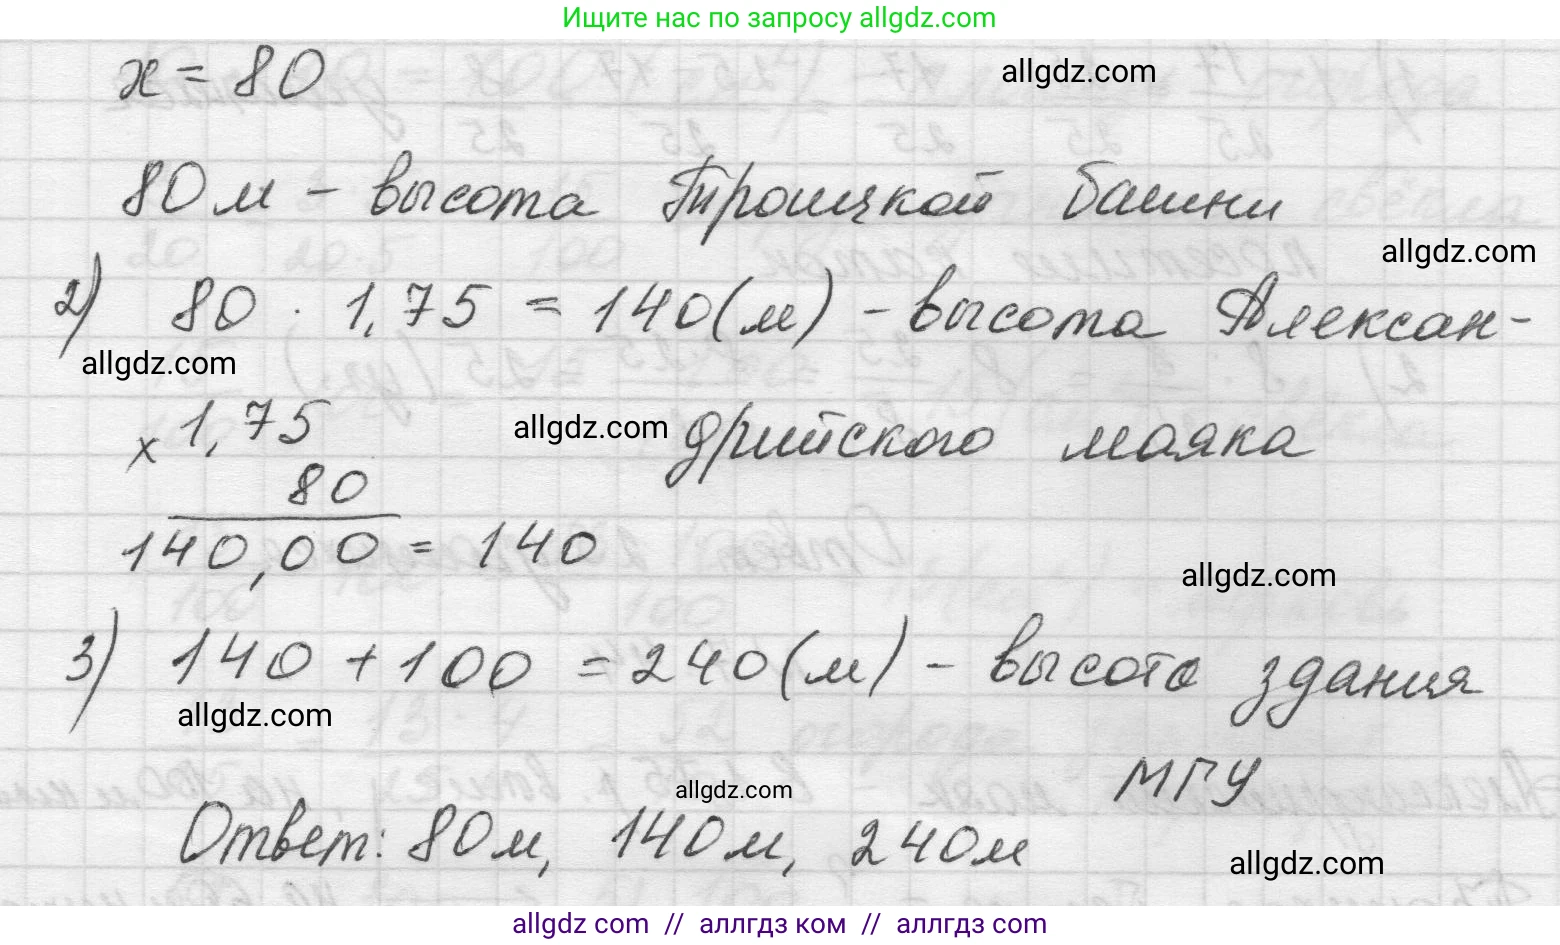 Ищите нас по запросу allgdz.com
x = 80
allgdz.com
80 м – высота Троицкой башни
allgdz.com
2) 80 · 1,75 = 140 (м) – высота Алексан-
allgdz.com
× 1,75 allgdz.com дрийского маяка
80
140,00 = 140
allgdz.com
3) 140 + 100 = 240 (м) – высота здания
allgdz.com
МГУ
allgdz.com
Ответ: 80 м, 140 м, 240 м
allgdz.com
allgdz.com // аллгдз ком // аллгдз com